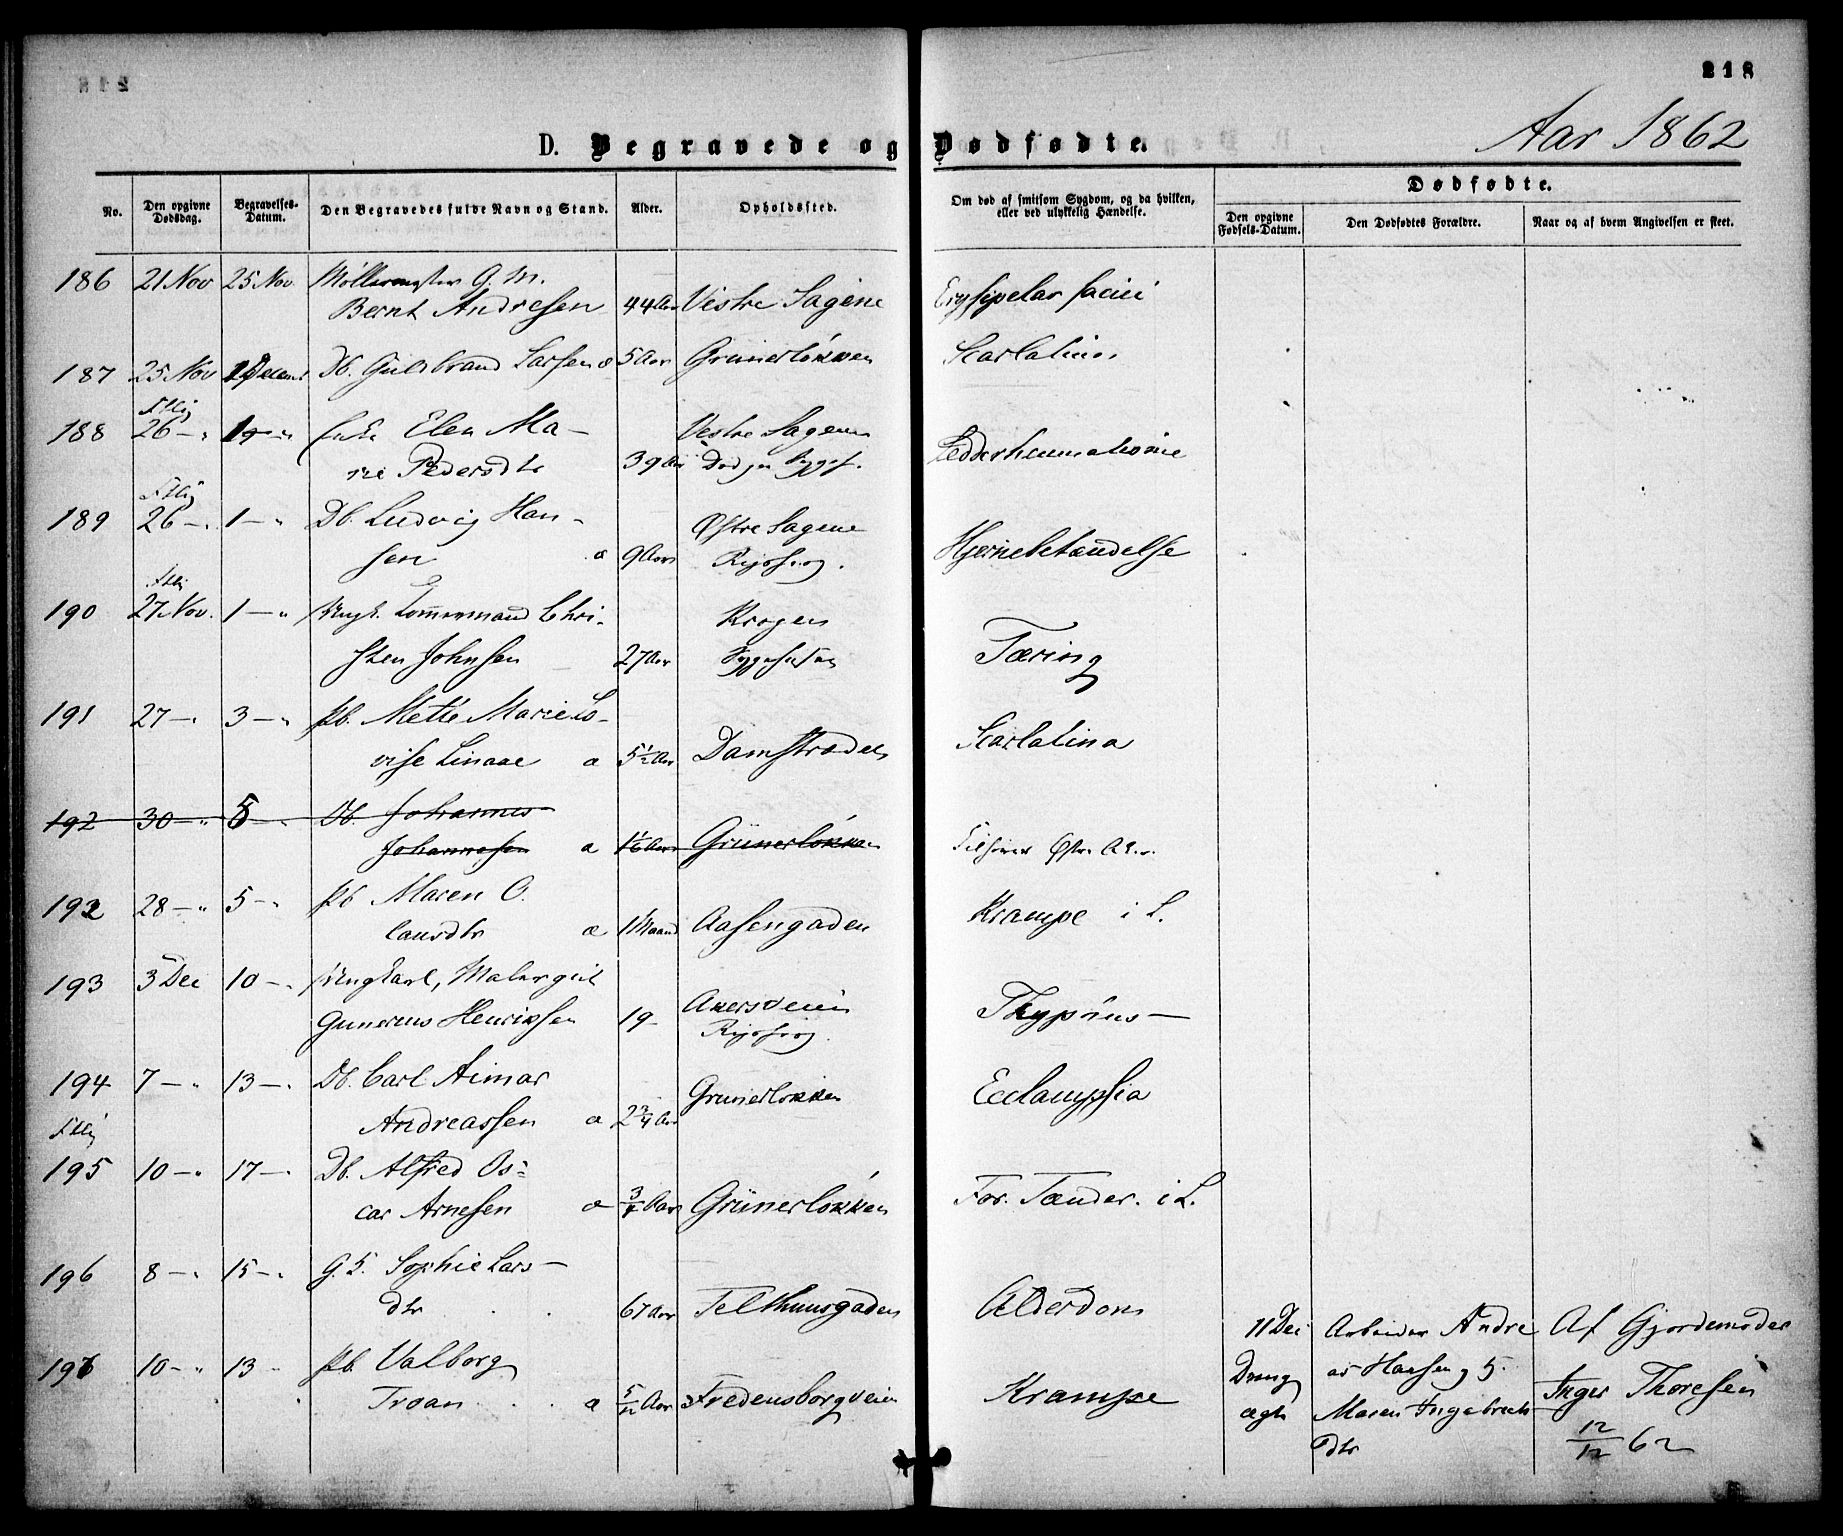 218
Aar 1862
D. Begravede og Dødfødte.
No. Den opgivne Dødsdag. Begravelses-Datum. Den Begravedes fulde Navn og Stand. Alder. Opholdssted. Om død af smitsom Sygdom, og da hvilken, eller ved ulykkelig Hændelse. Dødfødte.
Den opgivne Fødsels-Datum. Den Dødfødtes Forældre. Naar og af hvem Angivelsen er skeet.
186 21 Nov 25 Nov. Møllermester G. M.
Bernt Andresen 44 Aar Vestre Sagene Erysipelas faciei
187 25 Nov 1 Decem Db. Guldbrand Larsen a 5 Aar Grunerløkken Scarlatina
188 26 — " 1 — " Elen Ma- Vestre Sagene
rie Pedersdtr 39 Aar
189 26 — " 1 — " Db. Ludvig Han- Østre Sagene
sen a 9 Aar Rigshosp. Hjernebetændelse
190 27 Nov. 1 — " Ungk. Tømmermand Chri- Krogen
sten Johnsen 27 Aar Sygehuset Tæring
191 27 — " 3 — " Pb. Mette Marie Lo-
vise Linaae a 5½ Aar Damstrædet Scarlatina
192 30 — " 5 — " Db. Johannes
Johannesen a 1 1/6 Aar Grünerløkken Tilhører Østre Aker.
192 28 — " 5 — " Pb Maren O.
lausdtr a 1 Maand Aasengaden Krampe i L.
193 3 Dec 10 — " Ungkarl, Malergut Akersveien
Gunerius Henriksen 19 — Rigshosp. Thyphus —
194 7 — " 13 — " Db. Carl Aimar
Andreassen a 2¾ Aar Grunerløkken Eclampsia
195 10 — " 17 — " Db. Alfred Os-
car Arnesen a ¾ Aar Grünerløkken For. Tænder. i L.
196 8 — " 15 — " G. K. Sophie Lars —
dtr 67 Aar Telthuusgaden Alderdom
11 Dec Arbeider Andre Af Gjordemoder
196 10 — " 13 " Pb. Valborg
Dreng as Hansen og K. Inger Thoresen
Troan a 5/12 Aar Fredensborgveien Krampe
ægte Maren Ingebrets
Dtr 12/12 62